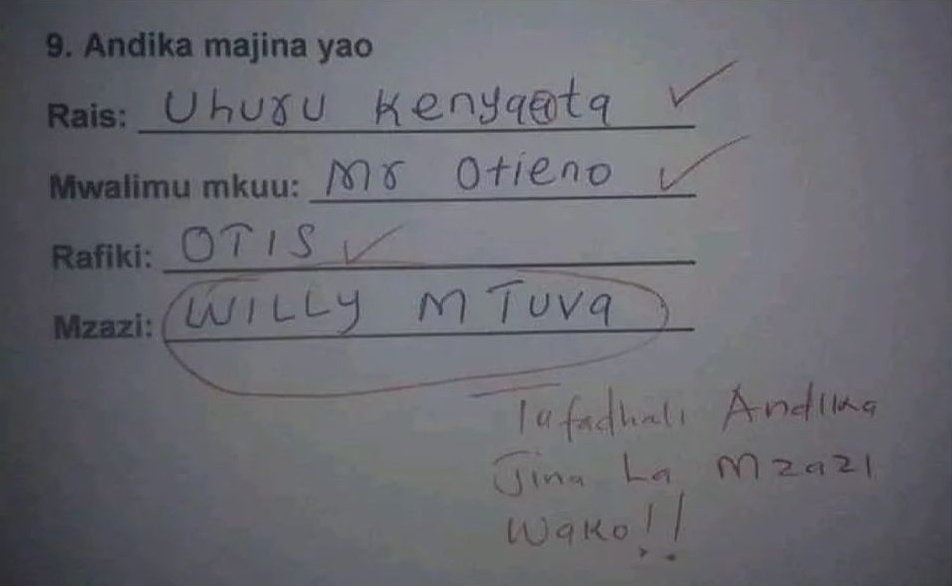 9. Andika majina yao
Rais: Uhuru Kenyaata
Mwalimu mkuu: Mr Otieno
Rafiki: OTIS
Mzazi: WILLY M TUVA
Tafadhali Andika
Jina La Mzazi
Wako!!